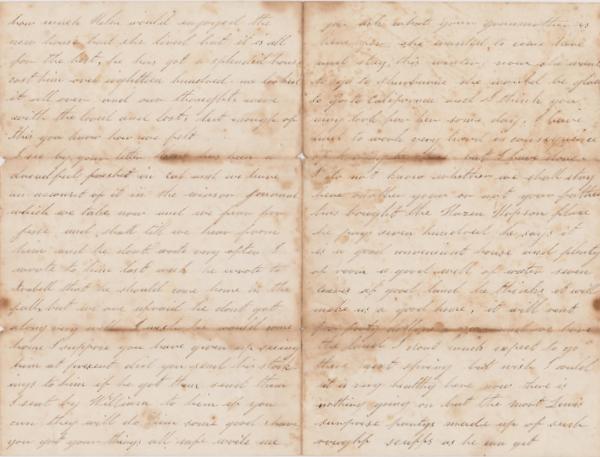 how much Helen would enjoyed the
new house had she lived but it is all
for the best, he has got a splendid house
cost him over eighteen hundred we looked
it all over and our thoughts were
with the loved and lost, but enough of
this you know how we felt
I see by your letter there has been a
dreadful in Cal and we have
an account of it in the Journal
which we take now and we fear for
and shall till we hear from
him and he dont write very often I
wrote to him last week he wrote to
that he should come home in the
fall, but we are afraid he dont get
along very well I wish he would come
home I suppose you have given up seeing
him at present did you send his stock
ings to him if he got them send them
I sent by William to him if you
can they will do him some good I hope
you got your things all safe write me
you ask what your grandmother is
here now she wanted to come here
and stay this winter, now she wants
to go to she would be glad
to go to California and I think you
may look for her some day, I have
had to work very hard in consequence
but I have done
I do not know whether we shall stay
here another year or not your father
has bought the Hazen place
he pays seven hundred he says it
is a good convenient house and plenty
of room a good well of water seven
acres of good land he thinks it will
make us a good home, it will rent
for
the which I dont much expect to go
there next spring but wish I could
it is very healthy here now there is
nothing going on but the most
surprise partys made up of such
rough as he can get